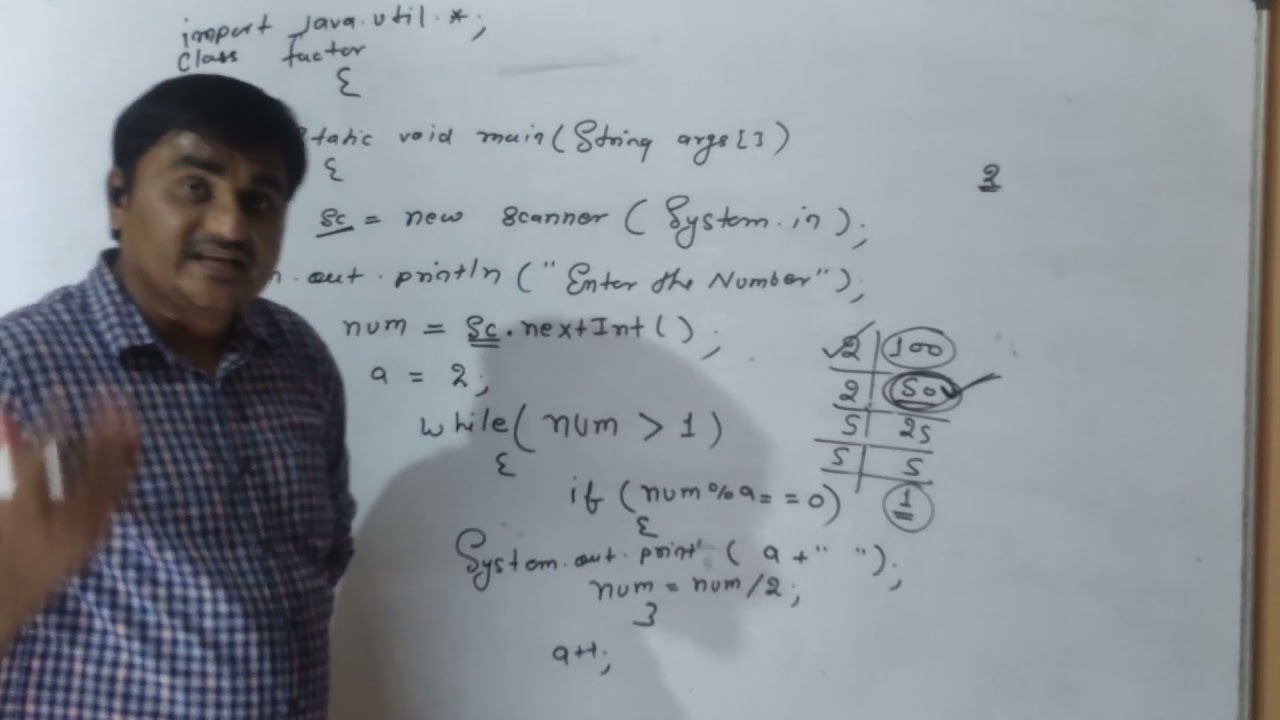 import java.util.*;
class factor
{
static void main(String args[])
{
Sc = new Scanner (System.in);
n.out.println("Enter the Number");
num = Sc.nextInt();
a = 2;
while(num > 1)
{
if (num%a==0)
{
System.out.print(a+" ");
num = num/2;
}
a++;
2
2 100
2 50
5 25
5 5
1